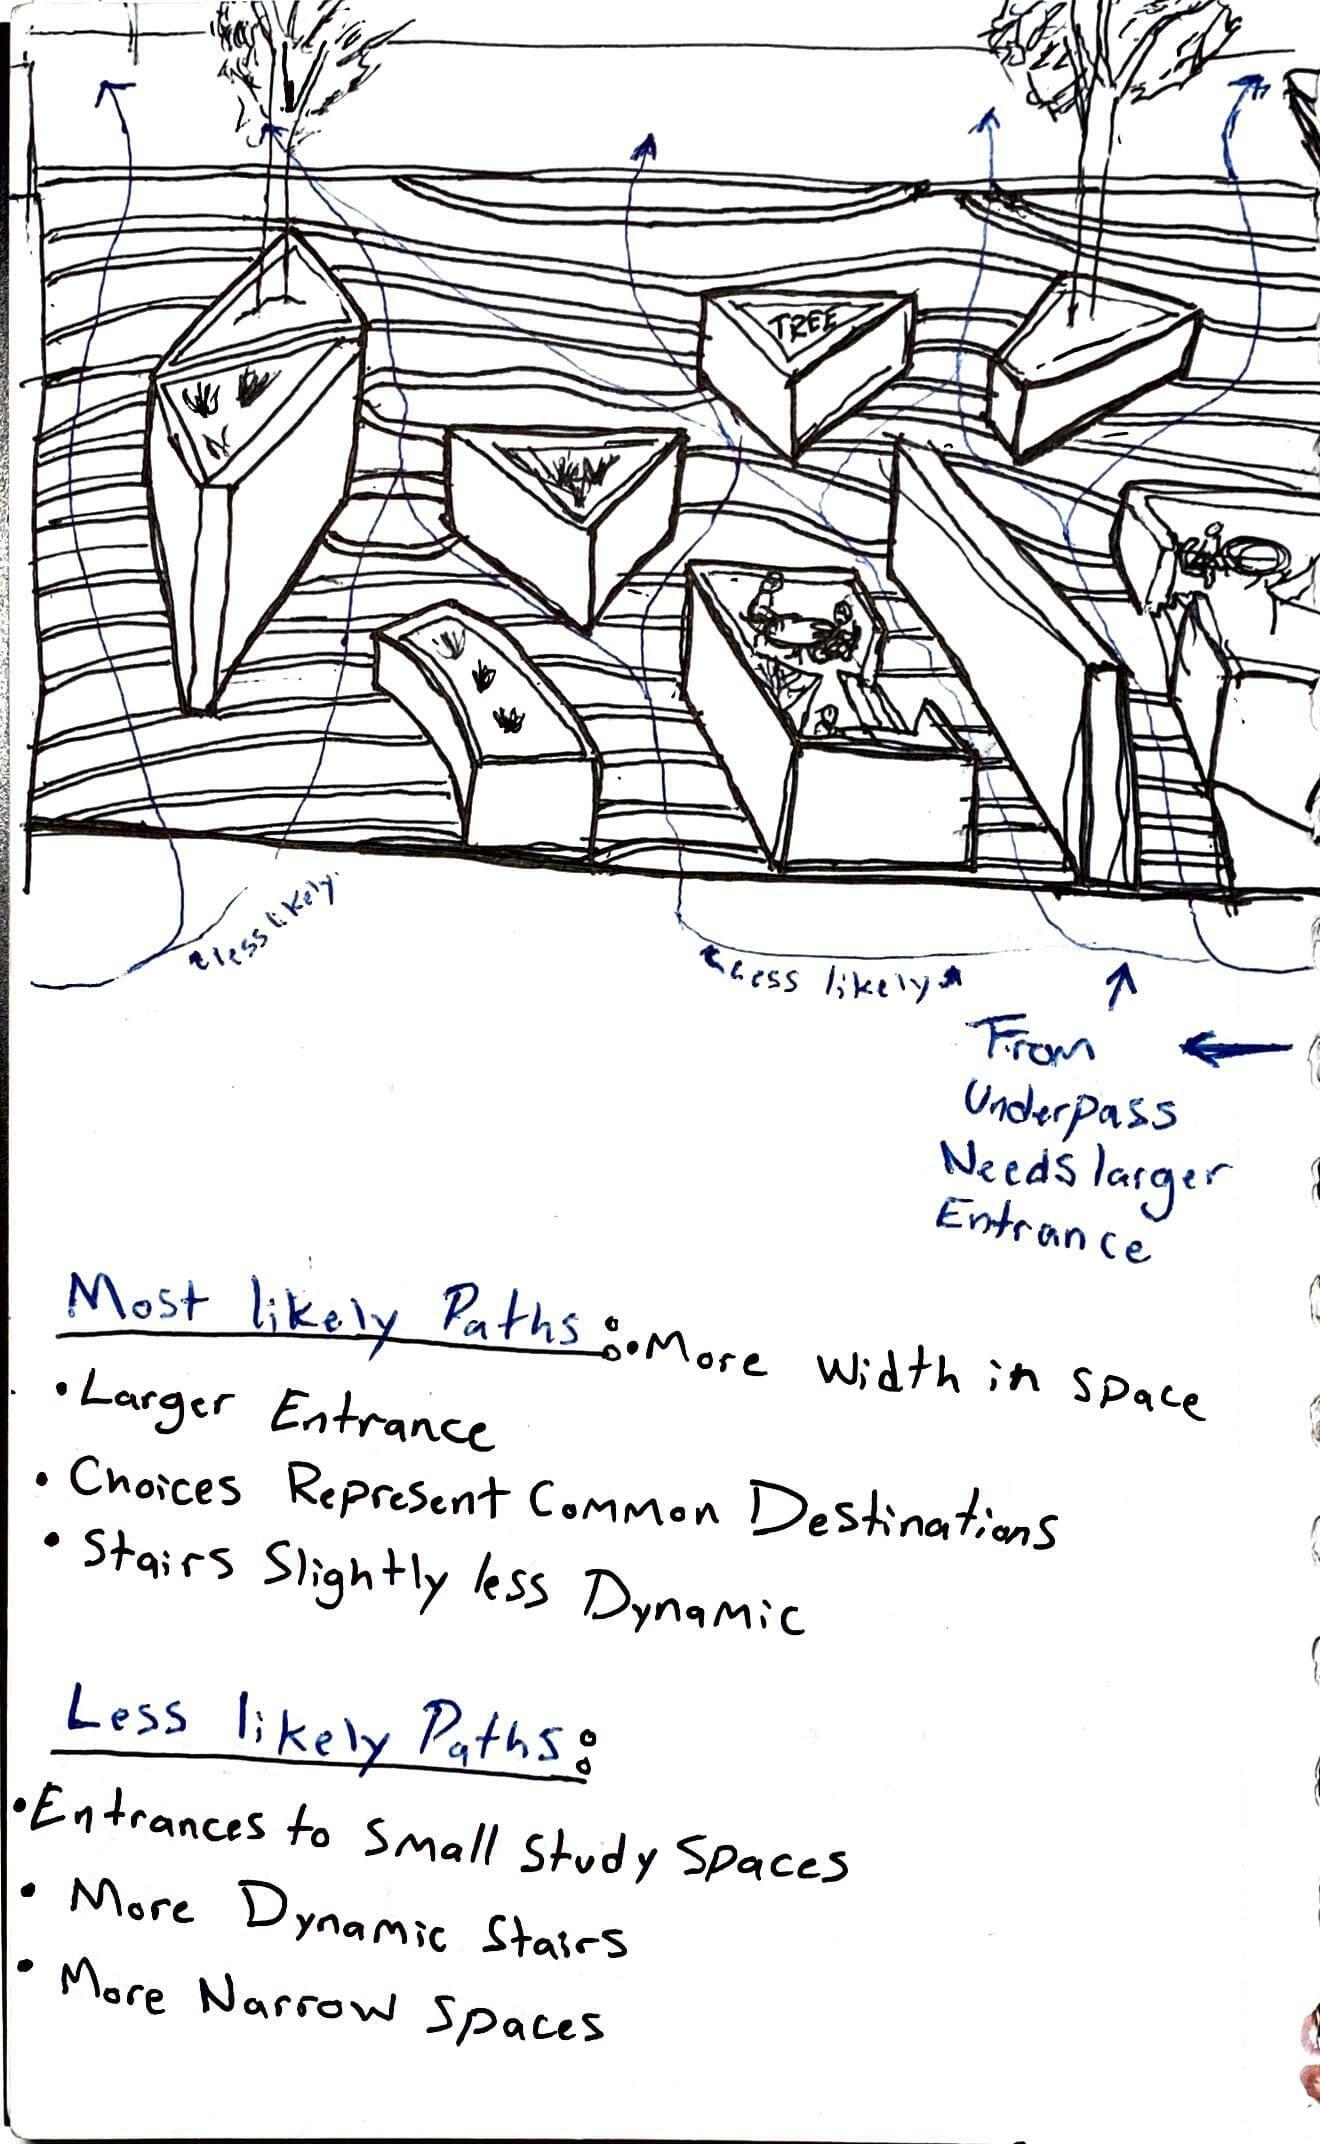 TREE
less likely
Less likely
From
Underpass
Needs larger
Entrance
Most likely Paths:
• More width in space
• Larger Entrance
• Choices Represent Common Destinations
• Stairs Slightly less Dynamic
Less likely Paths:
• Entrances to Small Study Spaces
• More Dynamic Stairs
• More Narrow Spaces